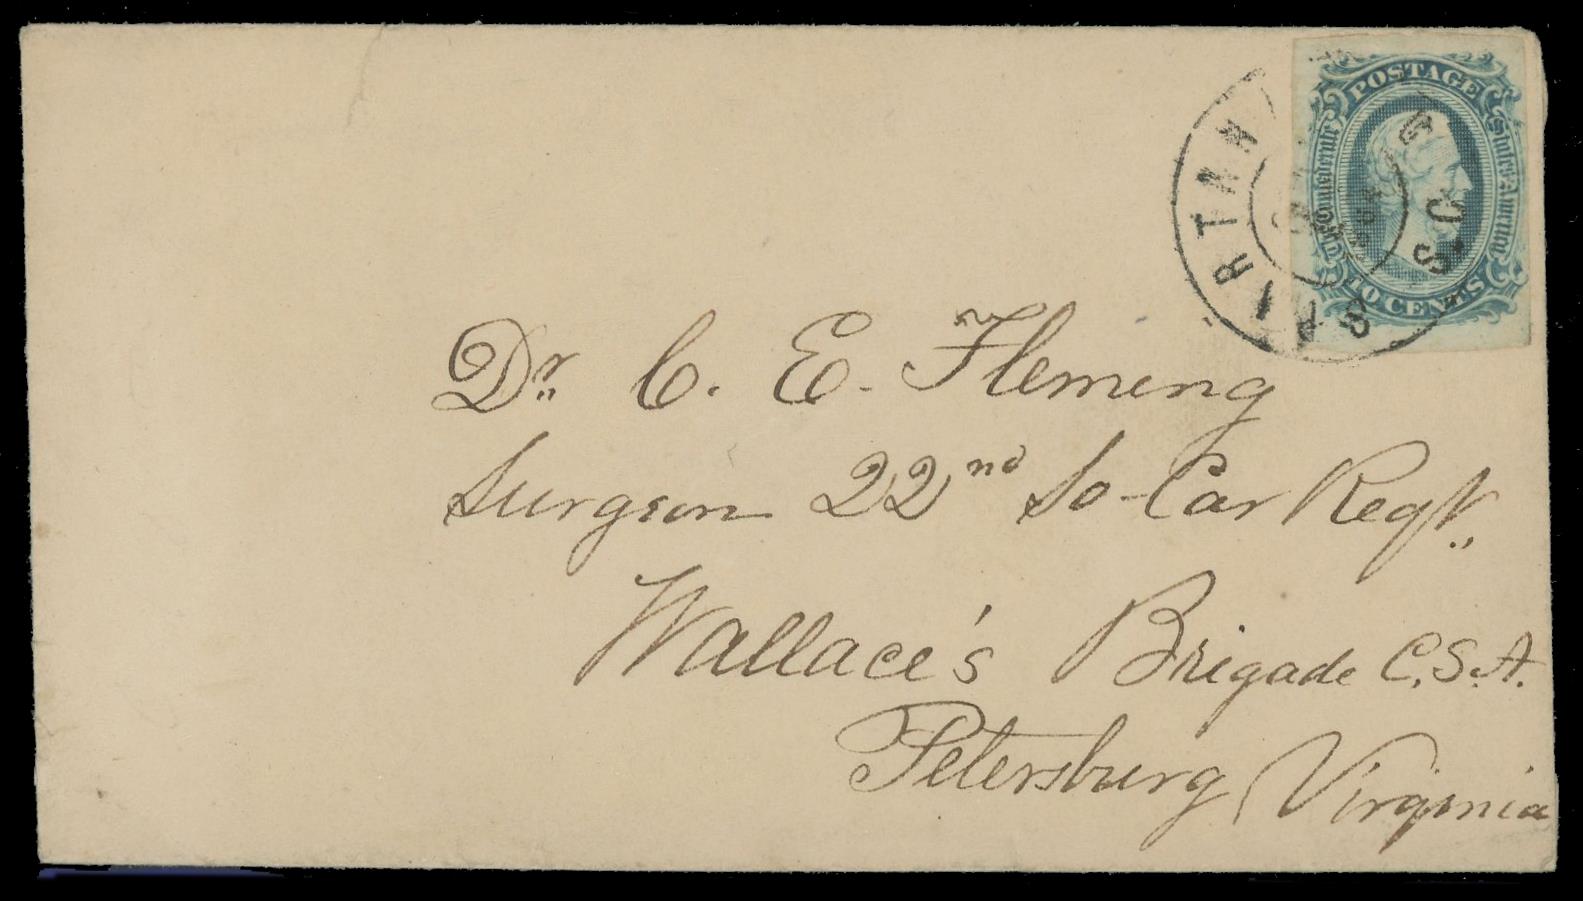 POSTAGE
The Confederate States of America
10 CENTS
SPARTAN G S.C.
Dr. C. E. Fleming
Surgeon 22nd So-Car Regt.
Wallace's Brigade C.S.A.
Petersburg Virginia